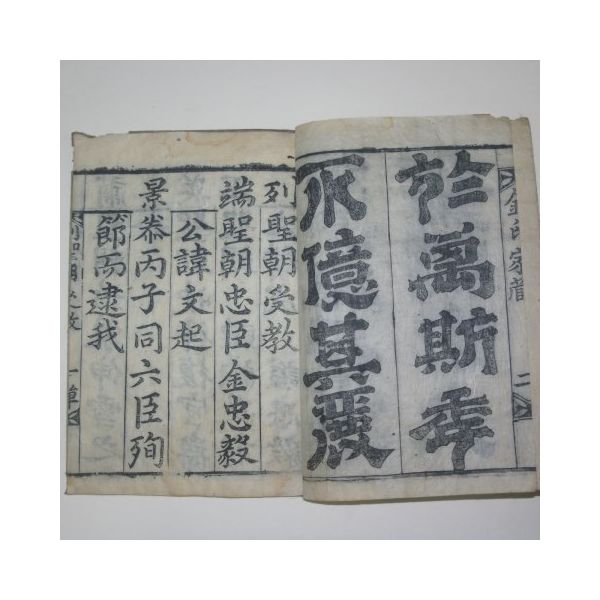 於萬斯年
永億其慶
金氏家譜
二
列聖朝受教
端聖朝忠臣金忠毅
公諱文起
景泰丙子同六臣殉
節而逮我
列聖朝受教
一章